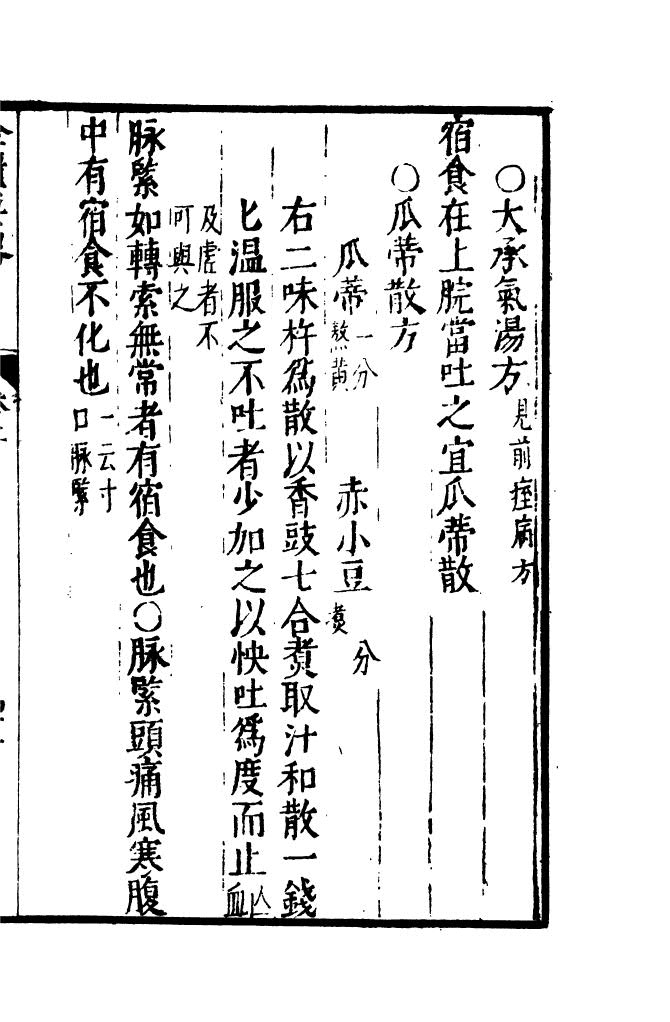 ○大承氣湯方見前痓病方
宿食在上脘當吐之宜瓜蒂散
○瓜蒂散方
瓜蒂一分熬黃 赤小豆 分煑
右二味杵爲散以香豉七合煑取汁和散一錢
匕温服之不吐者少加之以快吐爲度而止亡血
及虛者不可與之
脉緊如轉索無常者有宿食也○脉緊頭痛風寒腹
中有宿食不化也一云寸口脉緊